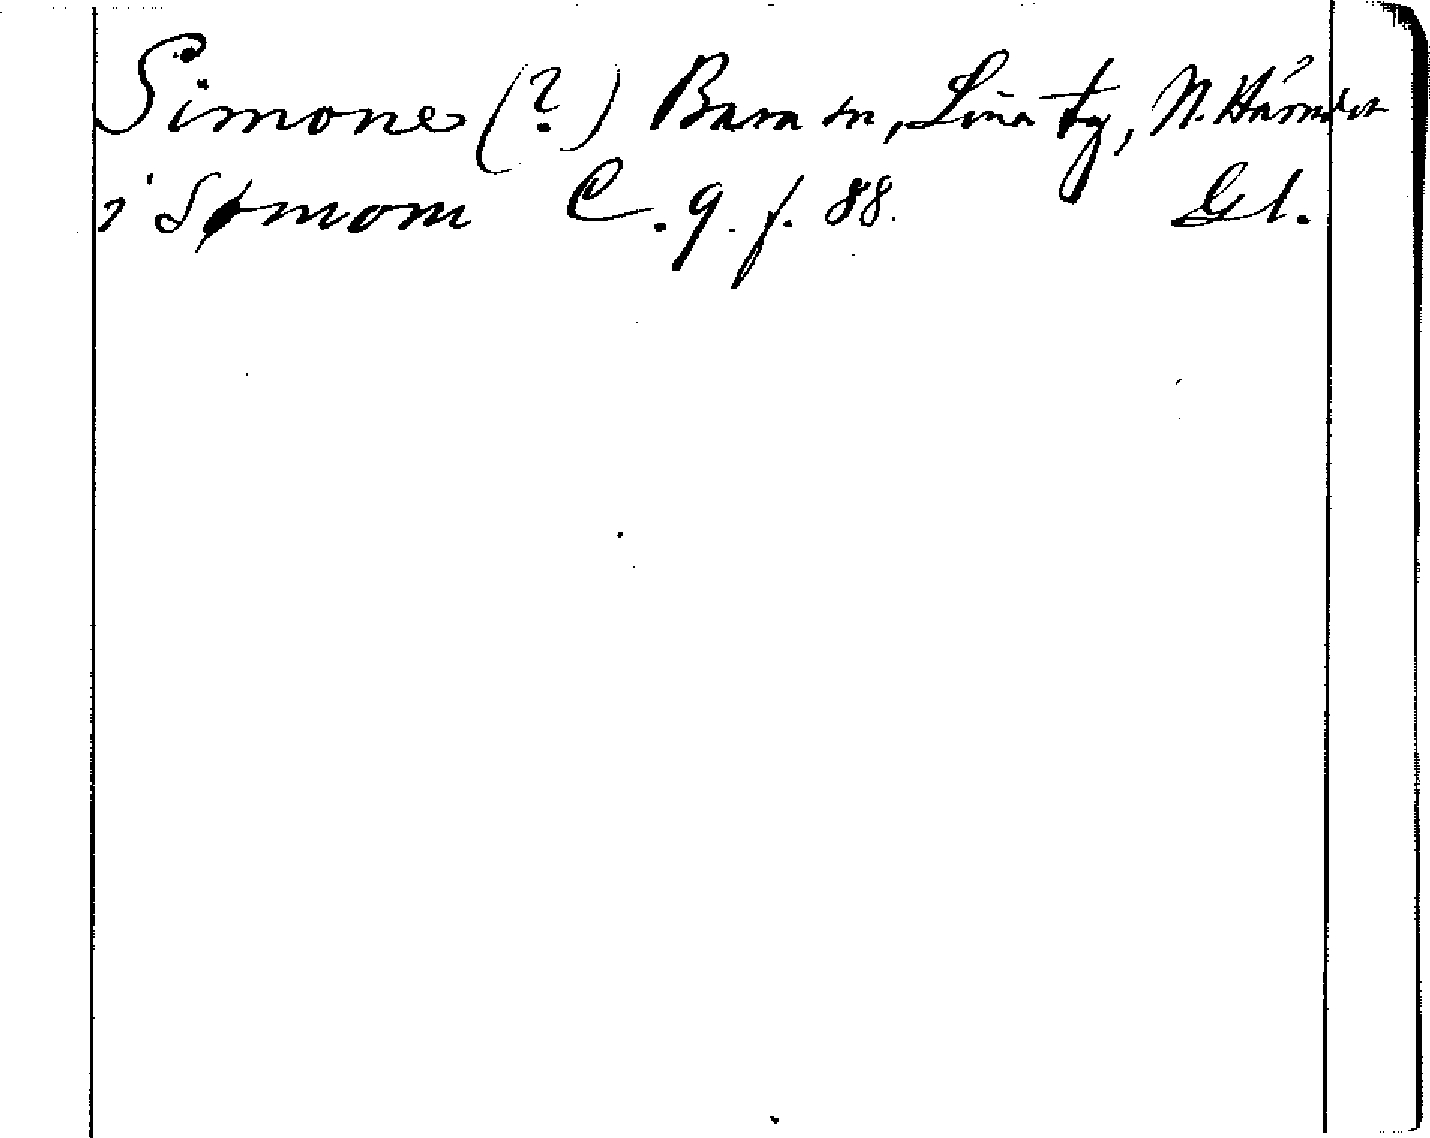 Simone (?) Bara sn, Lina ty, N. Härads
i Sømom C. 9. f. 88. Gl.